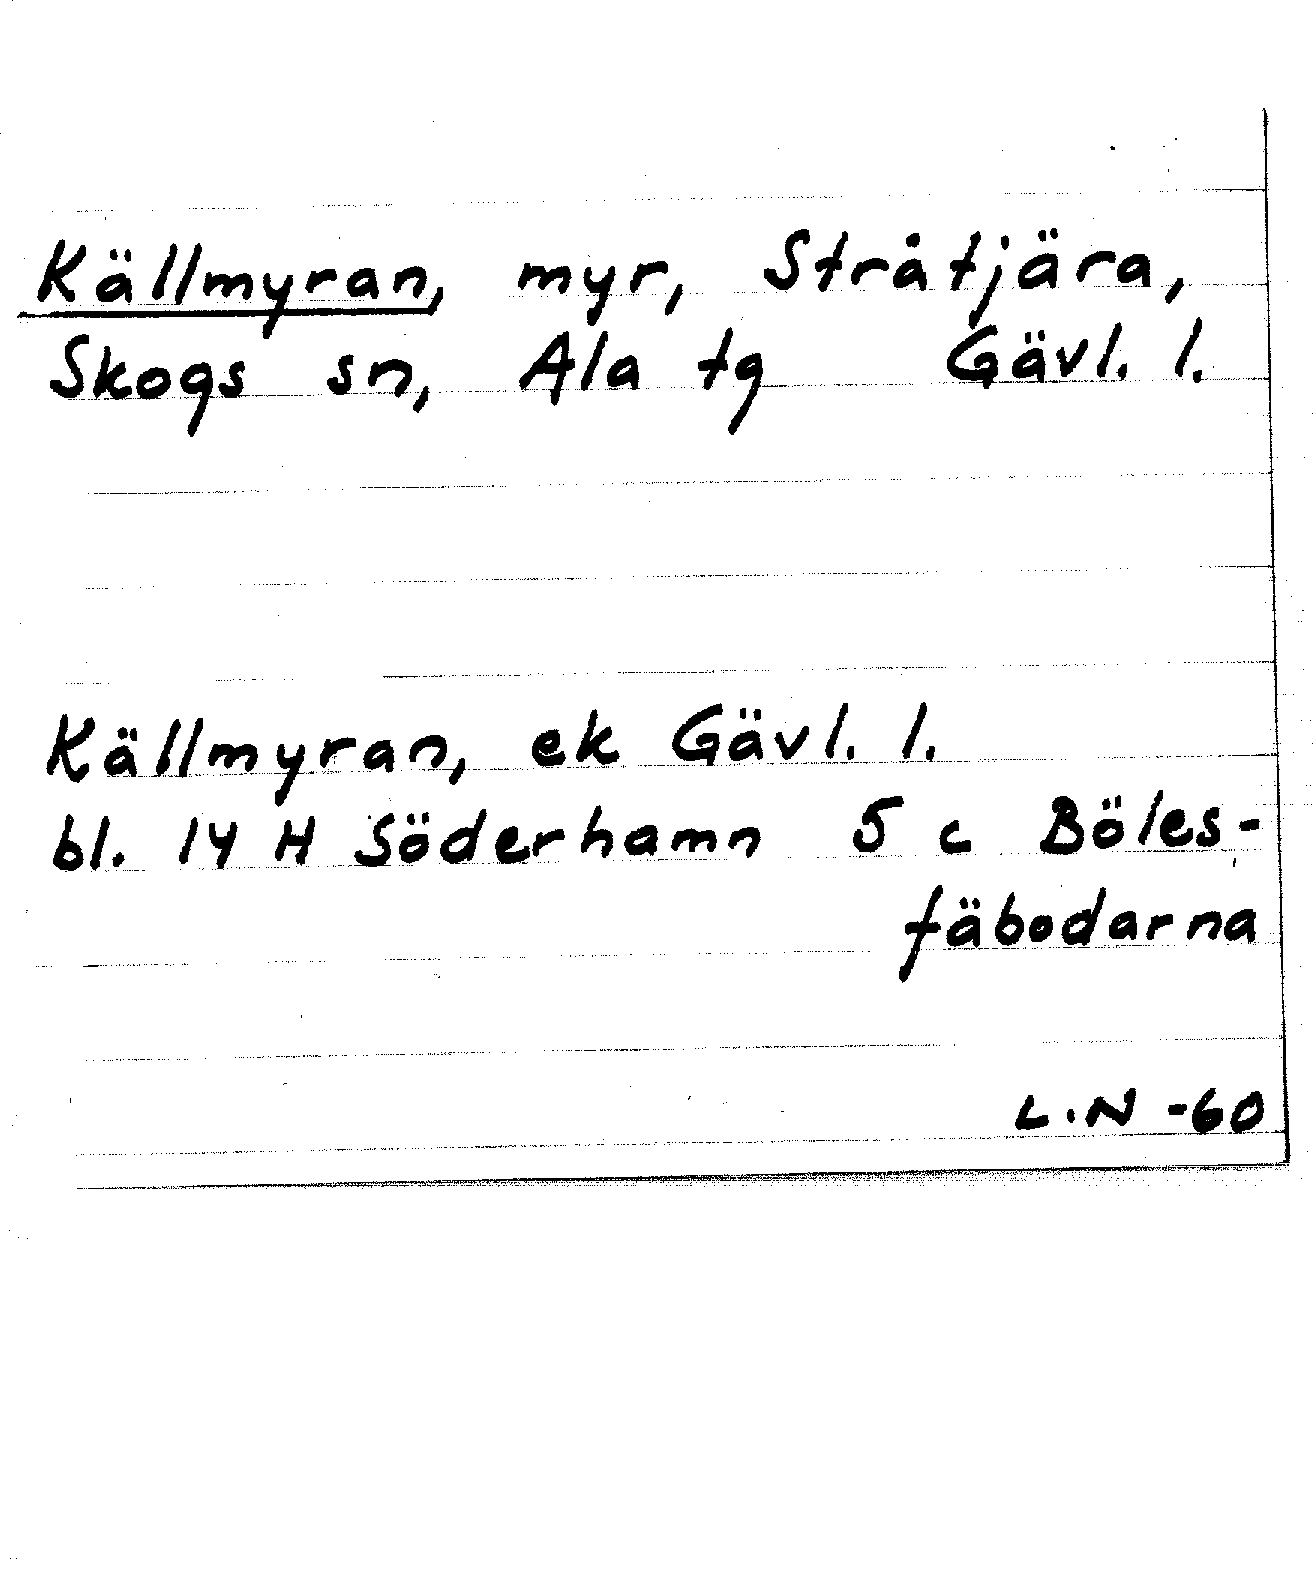 Källmyran, myr, Stråtjära,
Skogs sn, Ala tg Gävl. l.
Källmyran, ek Gävl. l.
bl. 14 H Söderhamn 5 c Böles-
fäbodarna
L.N -60